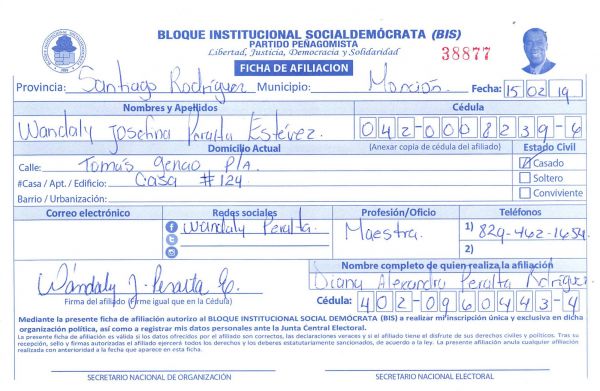 BLOQUE INSTITUCIONAL SOCIALDEMÓCRATA (BIS)
PARTIDO PEÑAGOMISTA
Libertad, Justicia, Democracia y Solidaridad
38877
FICHA DE AFILIACION
Provincia: Santiago Rodríguez Municipio: Monción Fecha: 15 02 19
Nombres y Apellidos Cédula
Wandaly Josefina Peralta Estévez. 042-0008239-6
Domicilio Actual (Anexar copia de cédula del afiliado) Estado Civil
Calle: Tomás Genao P/A. Casado
#Casa / Apt. / Edificio: Casa #124. Soltero
Barrio / Urbanización: Conviviente
Correo electrónico Redes sociales Profesión/Oficio Teléfonos
Wandaly Peralta. Maestra. 1) 829-462-1654
2)
Nombre completo de quien realiza la afiliación
Wándaly J. Peralta E. Diana Alexandra Peralta Rodríguez
Firma del afiliado (Firme igual que en la Cédula) Cédula: 402-0960443-4
Mediante la presente ficha de afiliación autorizo al BLOQUE INSTITUCIONAL SOCIAL DEMÓCRATA (BIS) a realizar mi inscripción única y exclusiva en dicha
organización política, así como a registrar mis datos personales ante la Junta Central Electoral.
La presente ficha de afiliación es válida si los datos ofrecidos por el afiliado son correctos, las declaraciones veraces y si el afiliado tiene el disfrute de sus derechos civiles y políticos. Tras su
recepción, sello y firmas autorizadas el afiliado ejercerá todos los derechos y los deberes estatutariamente sancionados, de acuerdo a la ley. La presente afiliación anula cualquier afiliación
realizada con anterioridad a la fecha que aparece en esta ficha.
SECRETARIO NACIONAL DE ORGANIZACIÓN SECRETARIO NACIONAL ELECTORAL